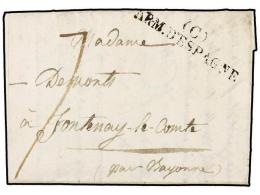 (C)
ARM. D'ESPAGNE
Madame
Demonts
à fontenay-le-Comte
(par Bayonne)
7